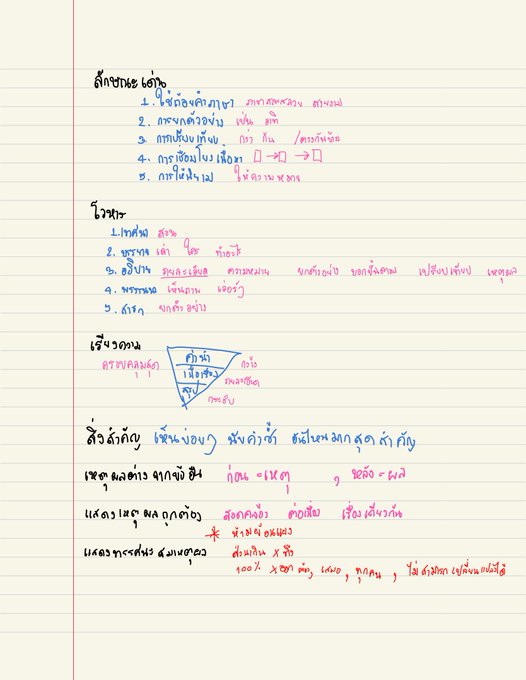 ลักษณะเด่น
1. ใช้ถ้อยคำภาษา ภาษาสละสลวย สวยงาม
2. การยกตัวอย่าง เช่น อาทิ
3. การเปรียบเทียบ กว่า กัน /ตรงกันข้าม
4. การเชื่อมโยงเนื้อหา □→□ →□
5. การให้นิยาม ให้ความหมาย
โวหาร
1. เทศนา สอน
2. บรรยาย เล่า ใคร ทำอะไร
3. อธิบาย รายละเอียด ความหมาย ยกตัวอย่าง บอกขั้นตอน เปรียบเทียบ เหตุผล
4. พรรณนา เห็นภาพ
5. สาธก ยกตัวอย่าง
เรียงความ
ครอบคลุมสุด คำนำ กว้าง
เนื้อเรื่อง รายละเอียด
สรุป กระชับ
สิ่งสำคัญ เห็นบ่อยๆ นับคำซ้ำ อันไหนมากสุดสำคัญ
เหตุผลต่างจากข้ออื่น ก่อน = เหตุ , หลัง = ผล
แสดงเหตุผลถูกต้อง สอดคล้อง ต่อเนื่อง เรื่องเดียวกัน
* ห้ามย้อนแย้ง
แสดงทรรศนะสมเหตุผล ส่วนเกิน x ทิ้ง
100% x ออก ต้อง, เสมอ, ทุกคน, ไม่สามารถเปลี่ยนแปลงได้